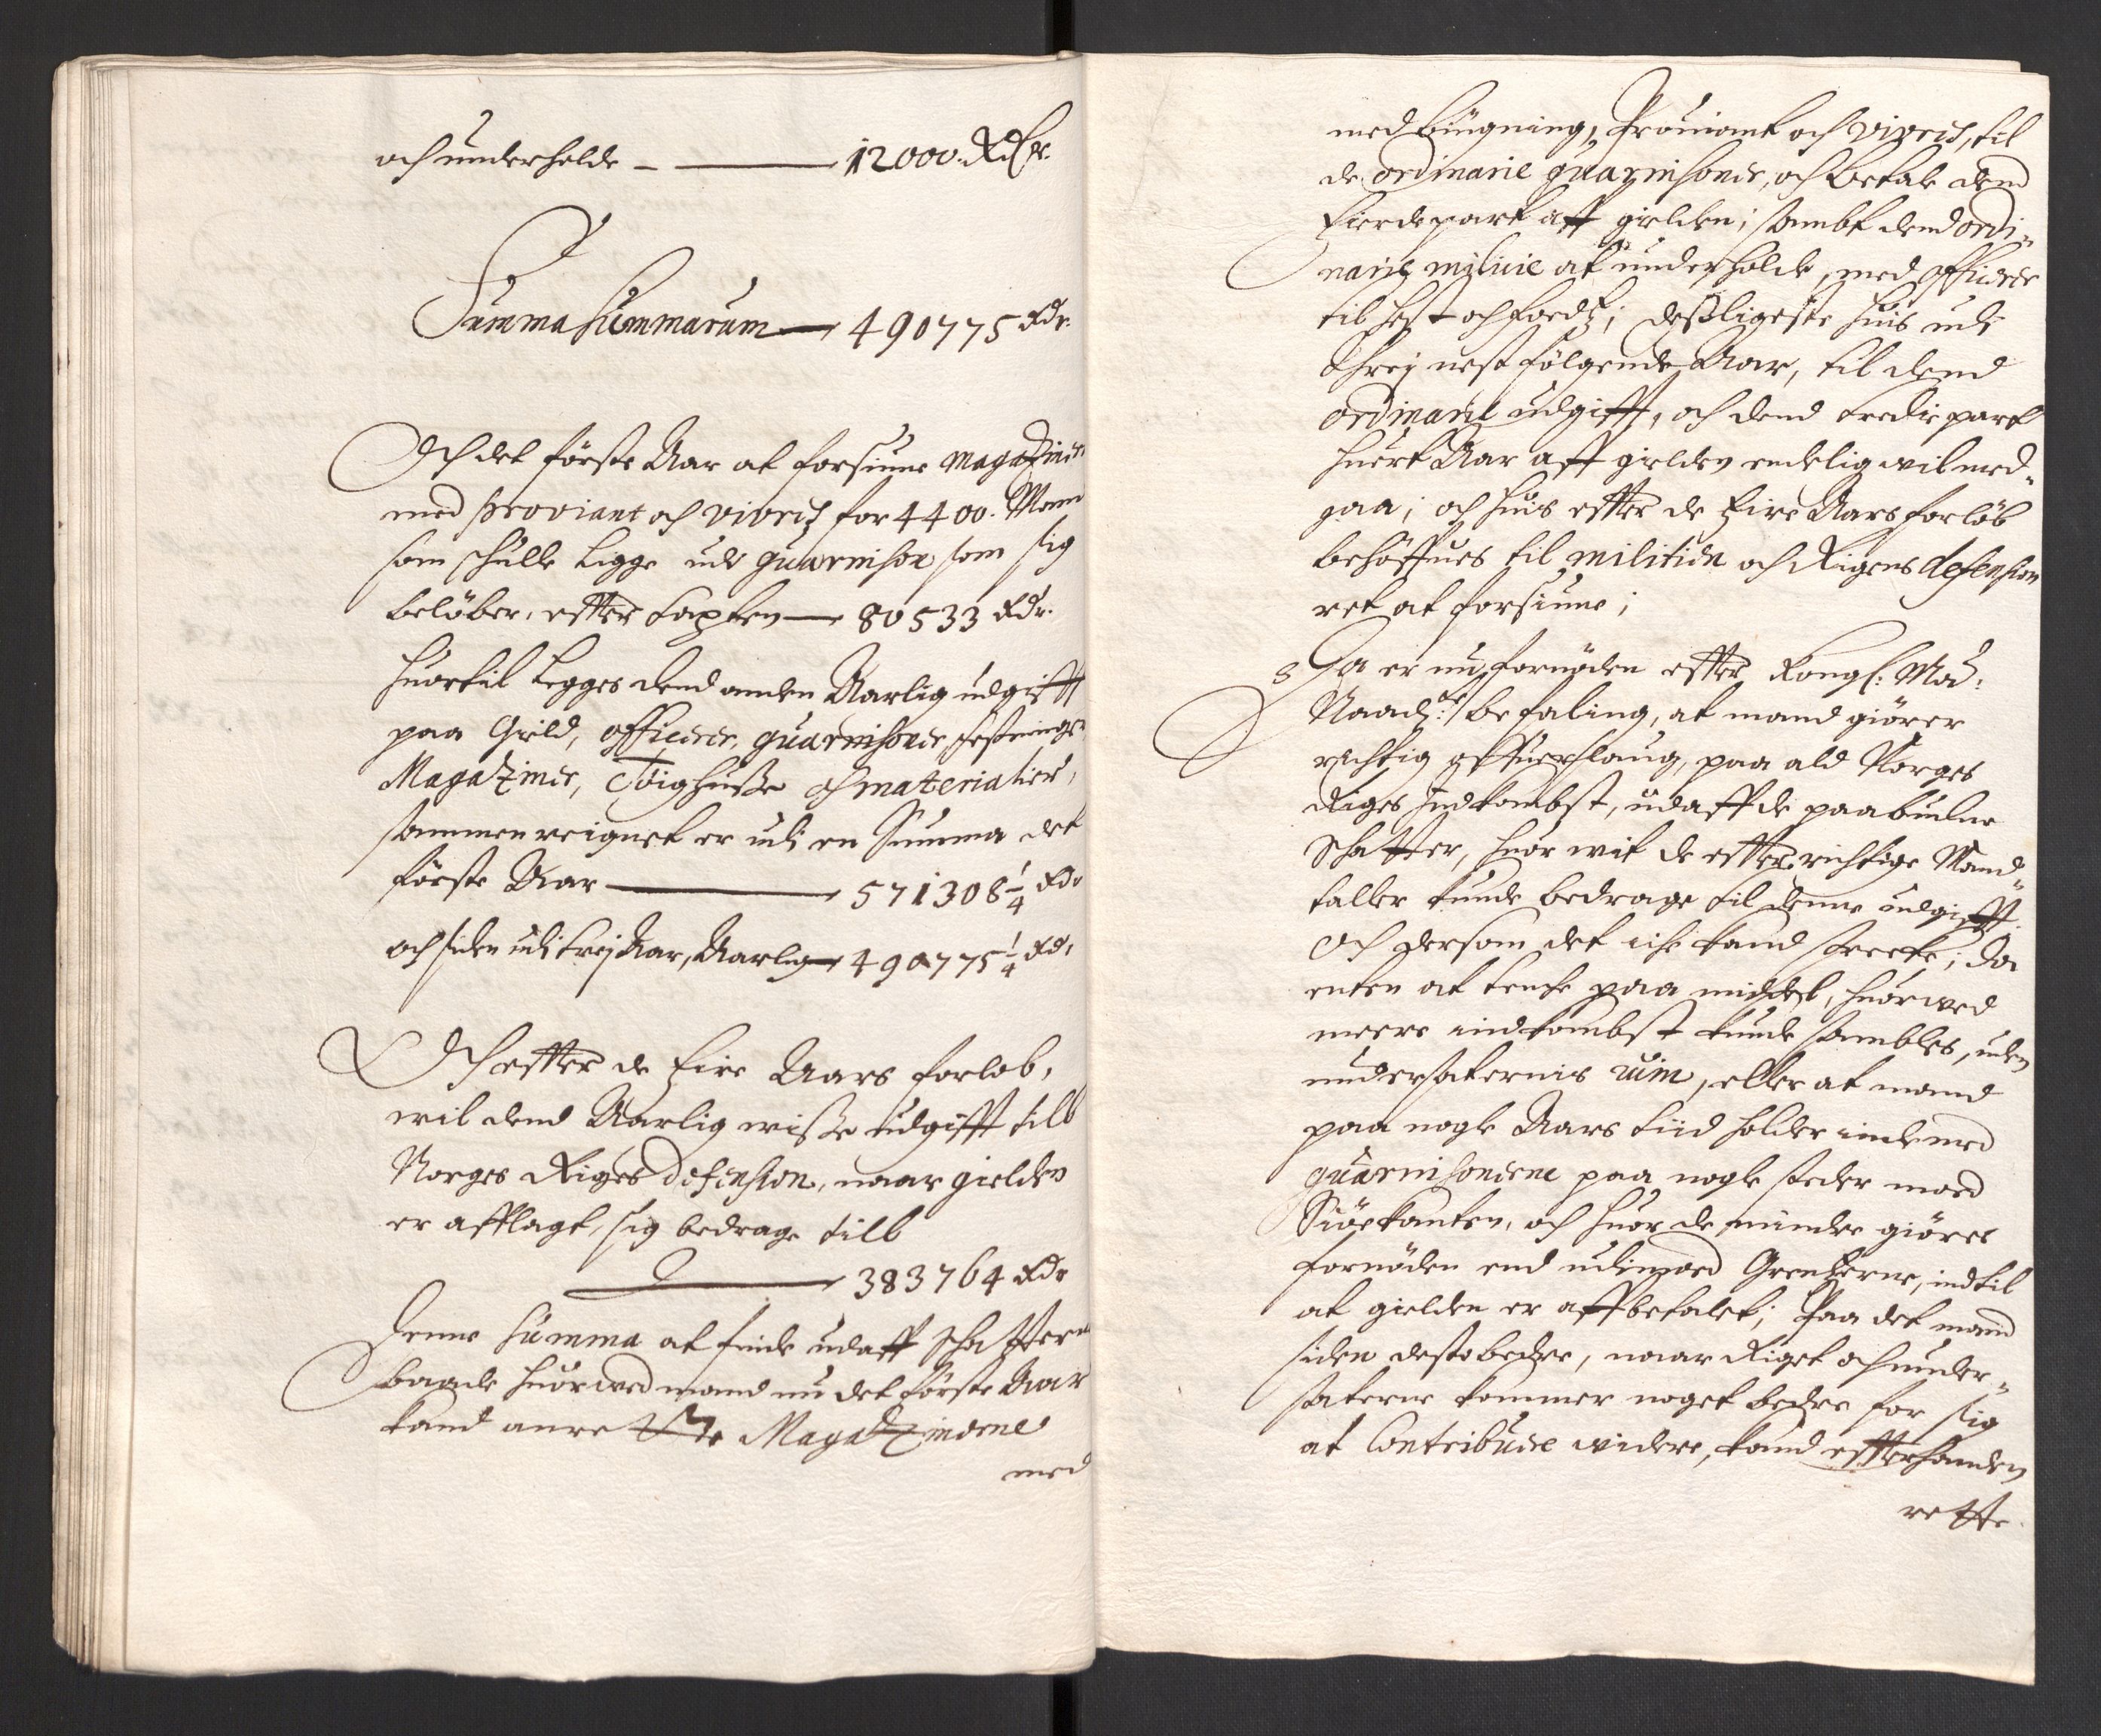 och underholde – — 12000. Rdr.
Summa Summarum — 490775 Rdr.
Och det förste Aar at forsiune Magaziner
med proviant och vivers for 4400. Mand
som schulle ligge udi guarnison som sig
belöber, effter taxten — 80533 Rdr.
huortil legges dend anden Aarlig udgifft
paa Gield, officerer, guarnisoner festninger
Magaziner, Töighusse och materialier,
sammenreignet er udi en Summa det
förste Aar — 571308 1/4 Rdr
och siden udi trej Aar, Aarlig — 490775 1/4 Rdr
Och effter de fire Aars forlob,
wil dend Aarlig wisse udgifft till
Norges Riges defension, naar gielden
er afflagt, sig bedrage till
— 383764 Rdr
Denne Summa at finde udaff Schatterne
baade huorwed mand nu det förste Aar
kand anrette Magazinerne
med
med bügning, Proviant och vivers, til
de ordinarie guarnisoner, och betale dend
fierdepart aff gielden; sambt dend ordi-
narie milicie at underholde, med officerer
til hest och foedz; desligeste huis udi
threj nest fölgende Aar, til dend
ordinarie udgifft, och dend tredie part
huert Aar aff gielden endelig wil med-
gaa; och huis effter de fire Aars forlöb
behöffues til militien och Rigens defension
ret at forsiune;
Da er nu fornöden effter Kongl: May:
Naadz: befaling, at mand giörer
richtig offuerslaug, paa ald Norges
Riges Indkombst, udaff de paabudne
Schatter, huor wit de effter richtige Mand-
taller kunde bedrage til denne udgifft.
Och dersom det iche kand strecke; Da
enten at tenche paa middel, huorwed
meere indkombst kunde sambles, uden
undersaternis ruin, eller at mand
paa nogle Aars tiid holder inde med
guarnisonerne paa nogle steder moed
Siökanten, och huor de mindre giöres
fornöden end udi moed Grentzerne, indtil
at gielden er affbetalet; Paa det mand
siden desto bedre, naar Riget och under-
saterne kommer noget bedre for sig
at Contribuere widere, kand effterhanden
rette.